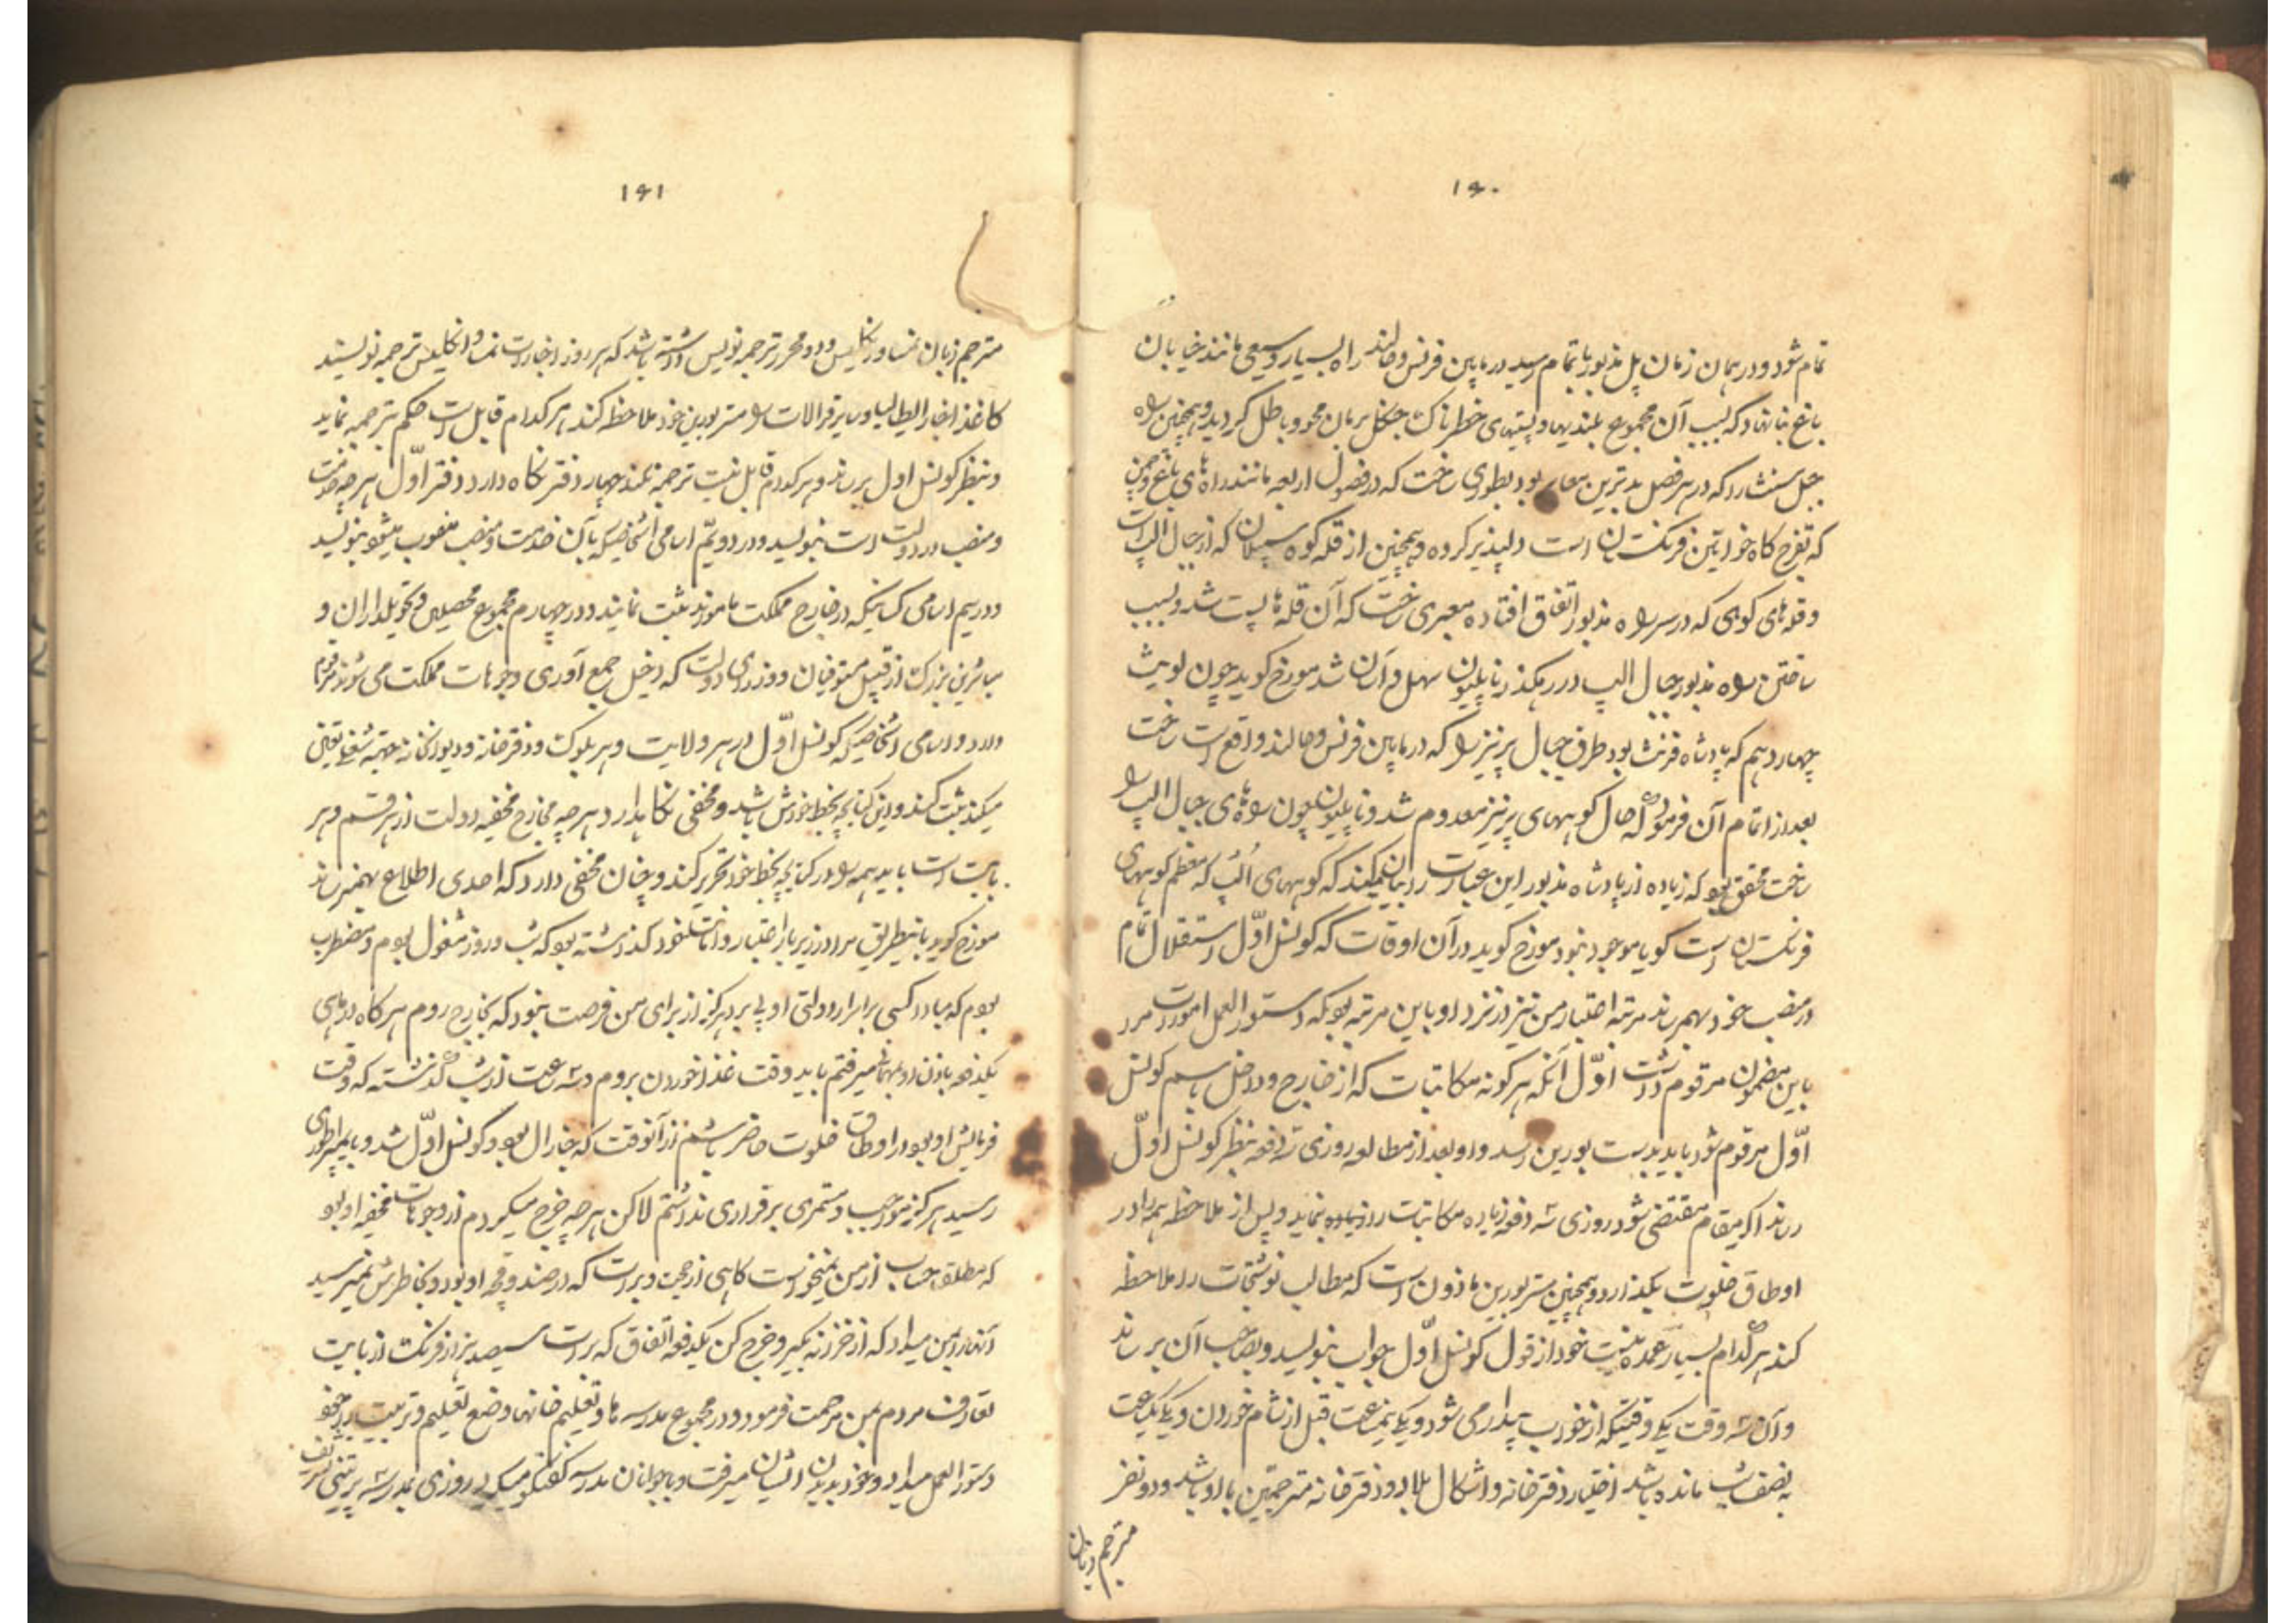 ۱۶۰
تمام شود و در همان زمان پل مذبور باتمام رسید در مابین فرنس و راه بسیار وسیعی مانند خیابان
باغ بنا نهاد که بسبب آن مجموع بلندیها و پستیهای خطرناک جنکل بر مان محو و باطل کردید و همچنین راه
جبل که در هر فصل بدترین معابر بود بطوری ساخت که در فصول اربعه مانند راه های باغ و چمن
که تفرج کاه خواتین فرنکستان است دلپذیر کرده و همچنین از قله کوه سمپلان که از جبال الپ است
و قله های کوهی که در سر راه مذبور اتفاق افتاده معبری ساخت که آن قله ها پست شد و بسبب
ساختن راه مذبور جبال الپ در رهکذر ناپلیون سهل و آسان شد مورخ کوید چون لویث
چهاردهم که پادشاه فرنث بود طرف جبال پرنیز را که در مابین فرنس و واقع است ساخت
بعد از اتمام آن فرمود که حال کوههای پرنیز معدوم شد و ناپلیون چون راه های جبال الپ را
ساخت محقق بود که زیاده از پادشاه مذبور این عبارت را بیان میکند که کوههای الپ که معظم کوههای
فرنکستان است کویا موجود نبود مورخ کوید در آن اوقات که کونسل اول استقلال تمام
در منصب خود بهمرساند مرتبه اعتبار من نیز در نزد او باین مرتبه بود که دستور العمل امورات مرا
باین مضمون مرقوم داشت اول آنکه هر کونه مکاتبات که از خارج و داخل باسم کونسل
اول مرقوم شود باید بدست بورین رسد و او بعد از مطالعه روزی سه دفعه بنظر کونسل اول
رساند اکر مقام مقتضی شود روزی سه دفعه زیاده مکاتبات نماید و پس از ملاحظه همه را در
اوطاق خلوت بکذارد و همچنین مستر بورین ماذون است که مطالب نوشتجات را ملاحظه
کند هر کدام بسیار عمده نیست خود از قول کونسل اول جواب بنویسد و بصاحب آن برساند
و آن سه وقت یکی وقتیکه از خواب بیدار می شود و یکی نیمساعت قبل از شام خوردن و یکی یکساعت
به نصف شب مانده باشد اختیار دفترخانه و اشکال بلاد و دفترخانه مترجمین با او باشد و دو نفر
مترجم زبان
۱۶۱
مترجم زبان نمسا و انکلیس و دو محرر ترجمه نویس داشته باشد که هر روز اخبارات نمسا و انکلیس ترجمه نویسند
کاغذ اخبار ایطالیا و سایر قرالات را مستر بورین خود ملاحظه کند هر کدام قابل است حکم بترجمه نماید
و بنظر کونسل اول برساند و هر کدام قابل نیست ترجمه نکند چهار دفتر نکاه دارد دفتر اول هر چه خدمت
و منصب در دولت است بنویسد و در دویم اسامی اشخاصیکه بآن خدمت و منصب منصوب میشود بنویسد
و در سیم اسامی کسانیکه در خارج مملکت مامورند ثبت نمایند و در چهارم مجموع محصلین و تحویلداران و
مباشرین بزرک از قبیل مستوفیان و وزرای دولت که دخیل جمع آوری وجوهات مملکت می شوند مرقوم
دارد و اسامی اشخاصیکه کونسل اول در هر ولایت و هر بلوک و دفترخانه و دیوانخانه بجهة شغلی تعیین
میکند ثبت کند و این کتابچه بخط خودش باشد و مخفی نکاهدارد و هر چه مخارج مخفیه دولت از هر قسم و هر
بابت است باید همه را در کتابچه بخط خود تحریر کند و چنان مخفی دارد که احدی اطلاع بهم نرساند
مورخ کوید باینطریق مرا در زیر بار اعتبار و امانت خود کذاشته بود که شب و روز مشغول بودم و مضطرب
بودم که مبادا کسی بر اسرار دولتی او پی برد هرکز از برای من فرصت نبود که بخارج روم هرکاه در ماهی
یکدفعه باذن او بمهمانی میرفتم باید وقت غذا خوردن بروم و سه ساعت از شب کذشته که وقت
فرمایش او بود در اوطاق خلوت حاضر باشم از آنوقت که جنرال بود و کونسل اول شد و بایمپراطوری
رسید هرکز مواجب و مستمری برقراری نداشتم لاکن هر چه خرج میکردم از وجوهات مخفیه او بود
که مطلقا حساب از من نمیخواست کاهی از حجت و برات که در صندوقچه او بود و بخاطرش نمیرسید
آنها را بمن میداد که از خزانه بکیر و خرج کن یکدفعه اتفاق که برات سیصد هزار فرنک از بابت
تعارف مردم بمن مرحمت فرمود و در مجموع مدرسه ها و تعلیم خانها وضع تعلیم و تربیت را خود
دستور العمل میداد و خود بدیدن ایشان میرفت و با جوانان مدرسه کفتکو میکرد روزی بمدرسه پرتنی تشریف